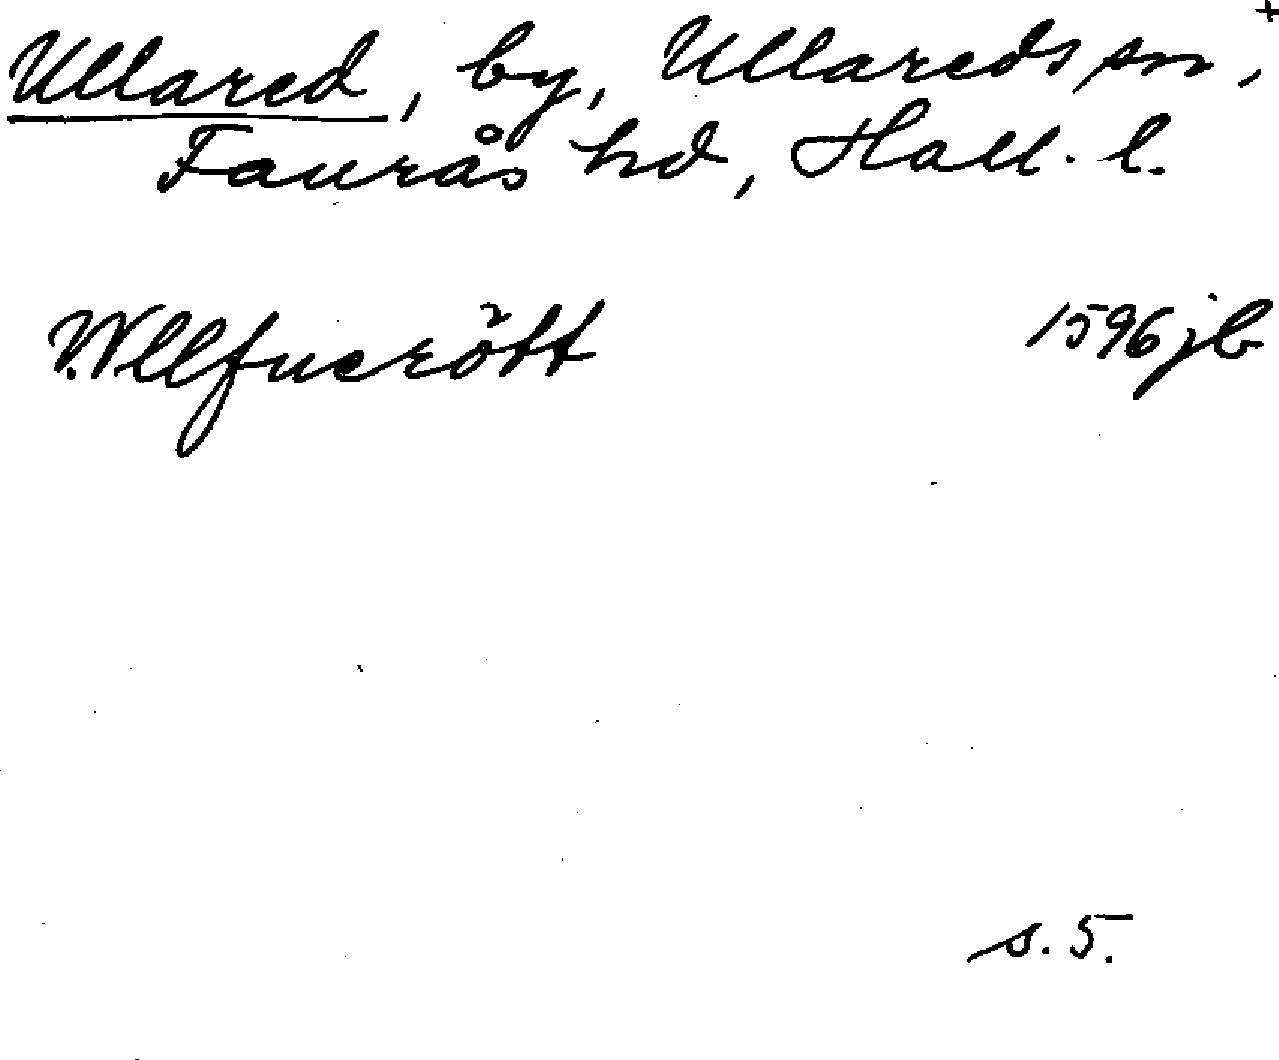 +
Ullared, by, Ullareds sn,
Faurås hd, Hall. l.
Wllfuerött 1596 jb
s. 5.